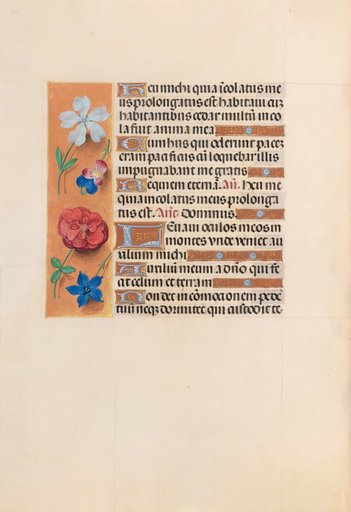 Heu michi quia icolatus me
us prolongatus est habitaui cuz
habitantibus cedar multu inco
la fuit anima mea
Cum hijs qui oderunt pacez
eram pacificus cu loquebar illis
impugnabant me gratis
Requiem eterna. An. Heu me
quia incolatus meus prolonga
tus est. Ane Dominus.
Leuaui oculos meos in
montes vnde veniet au
xilium michi
Auxilium meum a dno qui fe
cit celum et terram
Non det in comocionem pede
tuu neqz dormitet qui custodit te